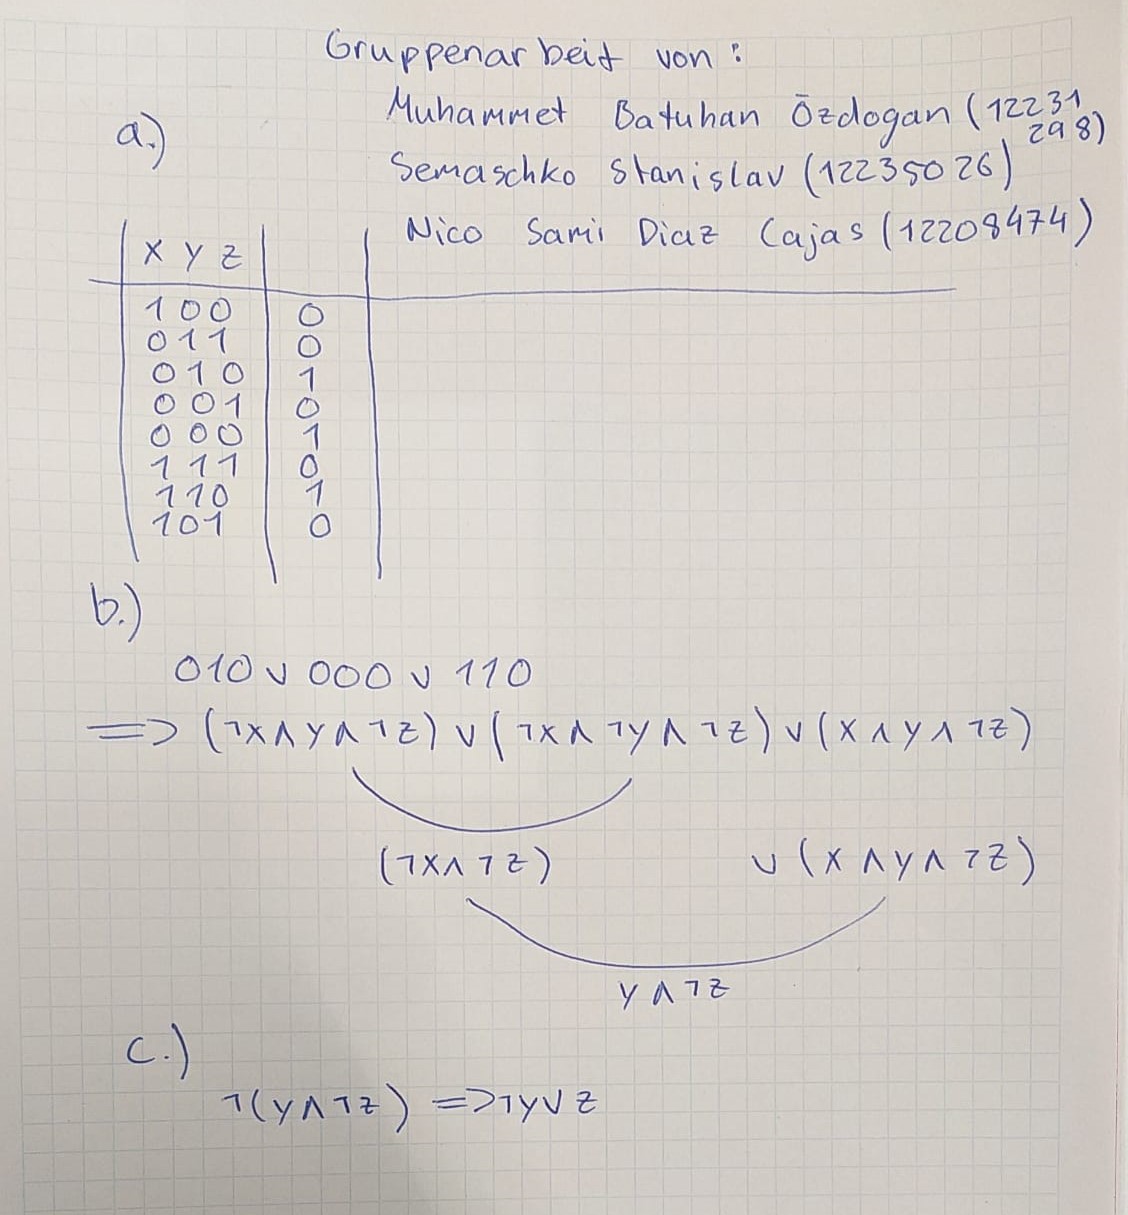 Gruppenarbeit von:
Muhammet Batuhan Özdogan (12231298)
a.)
Semaschko Stanislav (12235026)
Nico Sami Diaz Cajas (12208474)
x y z
1 0 0 0
0 1 1 0
0 1 0 1
0 0 1 0
0 0 0 1
1 1 1 0
1 1 0 1
1 0 1 0
b.)
010 ∨ 000 ∨ 110
=> (¬x ∧ y ∧ ¬z) ∨ (¬x ∧ ¬y ∧ ¬z) ∨ (x ∧ y ∧ ¬z)
(¬x ∧ ¬z) ∨ (x ∧ y ∧ ¬z)
y ∧ ¬z
c.)
¬(y ∧ ¬z) => ¬y ∨ z